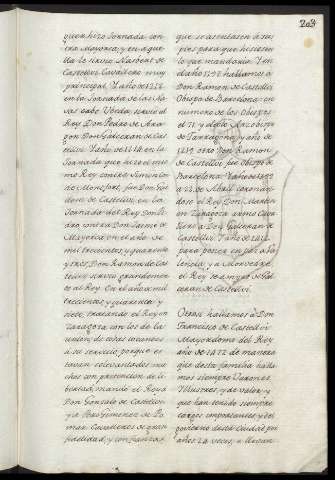 203
que hizo Jornada con-
tra Mayorca; y en aque-
lla le sirvio Naubert de
Castellvi Cavallero muy
principal. Y año de 1212
en la Jornada de las Na-
vas cabe Ubeda, sirvio al
Rey Don Pedro de Ara-
gon Don Galceran de Cas-
tellvi. Y año de 1218 en la
Jornada que hizo el mis-
mo Rey contra Simon Con-
de Monfort, fue Don Gui-
llen de Castellvi, en la
Jornada del Rey Don Pe-
dro contra Don Jaime de
Mayorca en el año de
mil trecientos, y quarenta
y tres, Don Ramon de Cas-
tellvi sirvio grandemen-
te al Rey. En el año de mil
trecientos, y quarenta, y
siete, tratando el Rey en
Zaragoza con los de la
union de cosas tocantes
a su servicio, porque es-
tavan relevantados mu-
chos con pretencion de li-
bertad, mandò el Rey à
Don Gonzalo de Castellvi
y à Pero Ximenez de Po-
mar Cavalleros de gran
fidelidad, y confianza
que se asentasen à sus
pies para que hiciesen
lo que mandaria. Y en
el año de 1192 hallamos à
Don Ramon de Castellvi
Obispo de Barcelona: en
numero de los Obispos
el 77 y al de Arzobispo
de Tarragona, y año de
1212 otro Don Ramon
de Castellvi fue Obispo de
Barcelona. Y año de 1399
à 23 de Abril coronan-
dose el Rey Don Martin
en Zaragoza armò Cava-
llero à Don Galceran de
Castellvi. Y año de 1412
para poner en paz à Va-
lencia, y à Morvedre,
el Rey se amparò de Gal-
ceran de Castellvi.
Otrosi hallamos à Don
Francisco de Castellvi
Mayordomo del Rey
año de 1472 de manera
que desta familia halla-
mos siempre Varones
Illustres, y de valor, y
que han tenido siempre
cargos importantes, y del
govierno desta Ciudad por
años 20 veces, à llevan